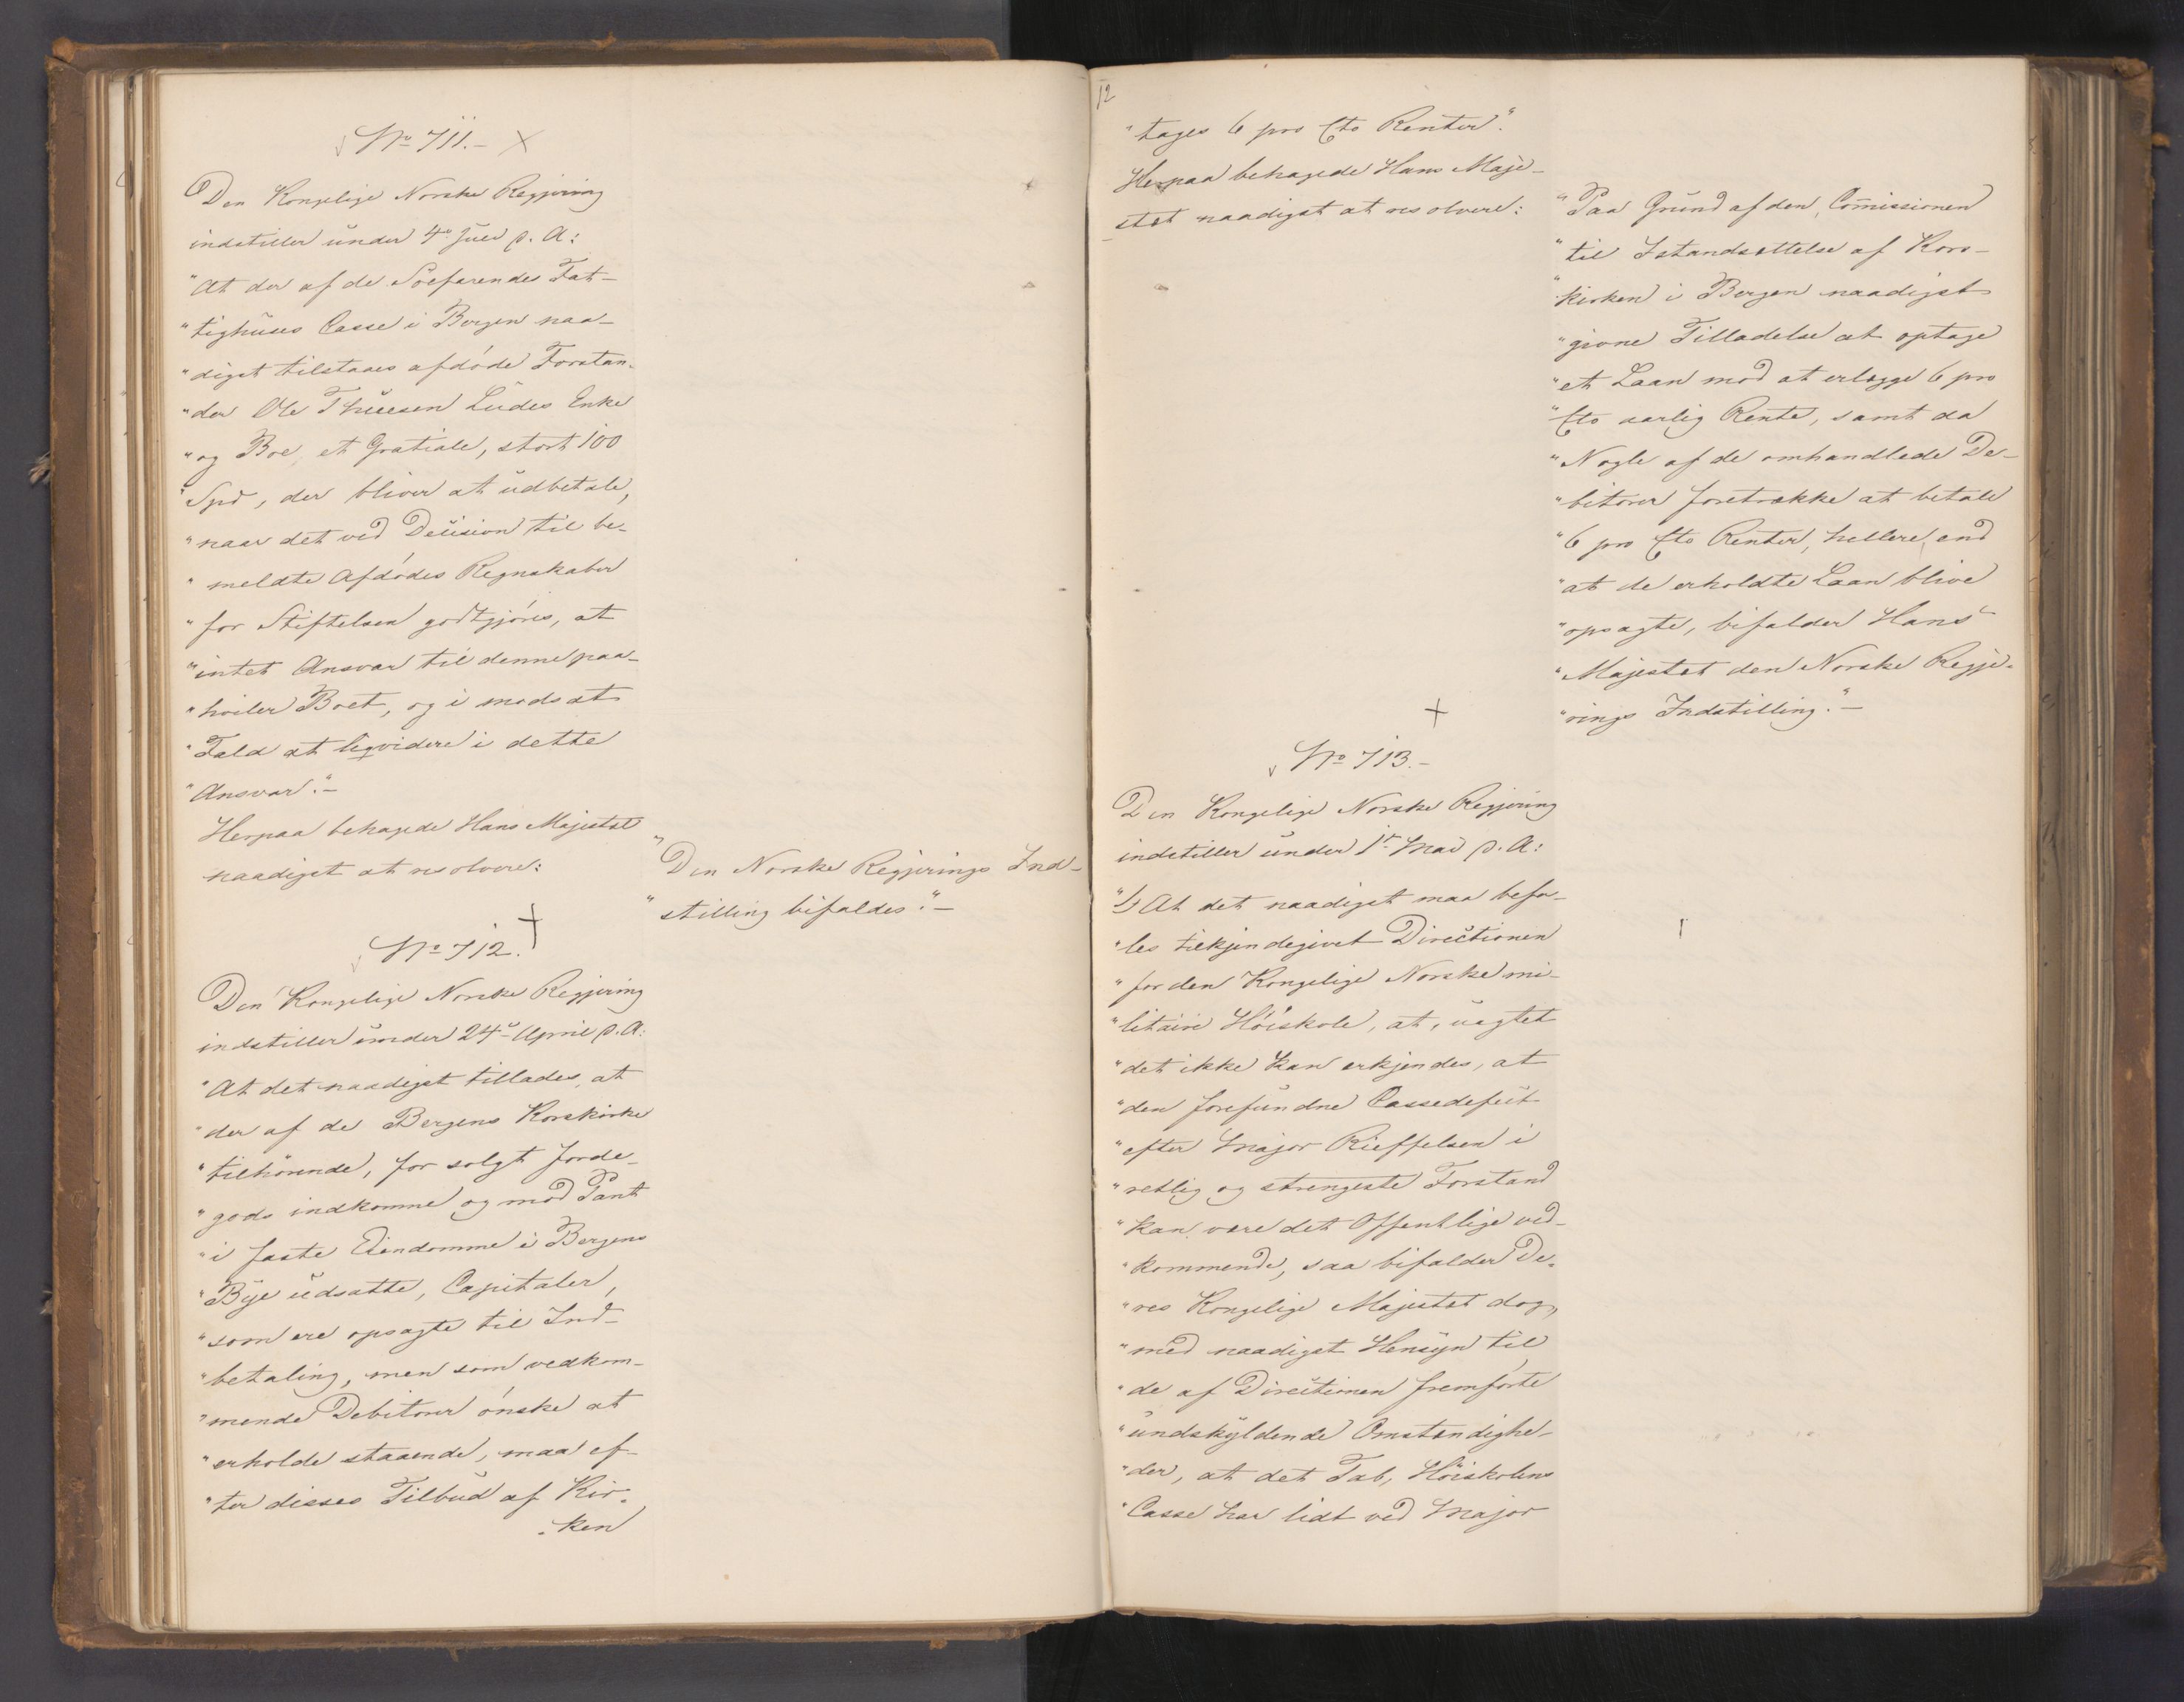 No 711.-
Den Kongelige Norske Regjering
indstiller under 4de Juli d. A:
"At der af de Söefarendes Fat-
"tighuses Casse i Bergen naa-
"digst tilstaaes afdöde Forstan-
"der Ole Thuesen Ludes Enke
"og Boe, et Gratiale, stort 100
"Spd, der bliver at udbetale,
"naar det ved Decision til be-
"meldte Afdödes Regnskaber
"for Stiftelsen godtgjöres, at
"intet Ansvar til denne paa-
"hviler Boet, og i modsat
"Fald at liqvidere i dette
"Ansvar".-
Herpaa behagede Hans Majestæt
naadigst at resolvere:
"Den Norske Regjerings Ind-
"stilling bifaldes".-
No 712.
Den Kongelige Norske Regjering
indstiller under 24de April d. A:
"At det naadigst tillades, at
"der af de Bergens Korskirke
"tilhörende, for solgt Jorde-
"gods indkomne og mod Pant
"i faste Eiendomme i Bergens
"Bye udsatte, Capitaler,
"som ere opsagte til Ind-
"betaling, men som vedkom-
"mende Debitorer önske at
"erholde staaende, maa ef-
"ter disses Tilbud af Kir-
"ken
12
"tages 6 pro Cto Renter".
Herpaa behagede Hans Maje-
stæt naadigst at resolvere:
"Paa Grund af den, Comissionen
"til Istandsættelse af Kors-
"kirken i Bergen naadigst
"givne Tilladelse at optage
"et Laan mod at erlægge 6 pro
"Cto aarlig Rente, samt da
"Nogle af de omhandlede De-
"bitorer foretrække at betale
"6 pro Cto Renter, hellere, end
"at de erholdte Laan blive
"opsagte, bifalder Hans
"Majestæt den Norske Regje-
"rings Indstilling".-
No 713.-
Den Kongelige Norske Regjering
indstiller under 1ste Mai d. A:
"1) At det naadigst maa befa-
"les tilkjendegivet Directionen
"for den Kongelige Norske mi-
"litaire Höiskole, at, uagtet
"det ikke kan erkjendes, at
"den forefundne Cassedefect
"efter Major Rieffelsen i
"retlig og strengeste Forstand
"kan være det Offentlige ved-
"kommende, saa bifalder De-
"res Kongelige Majestæt dog,
"med naadigst Hensyn til
"de af Directionen fremförte
"undskyldende Omstændighe-
"der, at det Tab, Höiskolens
"Casse har lidt ved Major